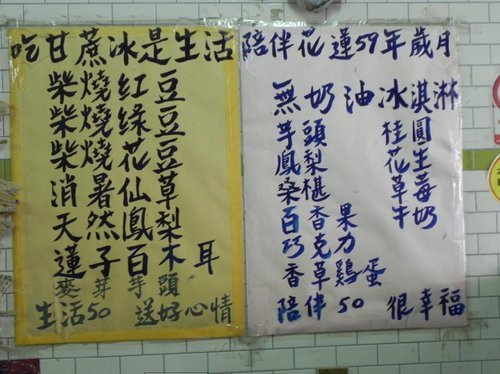 吃甘蔗冰是生活
柴燒紅豆
柴燒綠豆
柴燒花豆
消暑仙草
天然鳳梨
蓮子百木耳
麥芽芋頭
生活50 送好心情
陪伴花蓮59年歲月
無奶油冰淇淋
芋頭 桂圓
鳳梨 花生
桑椹 草莓
百香果 牛奶
巧克力
香草鷄蛋
陪伴50 很幸福